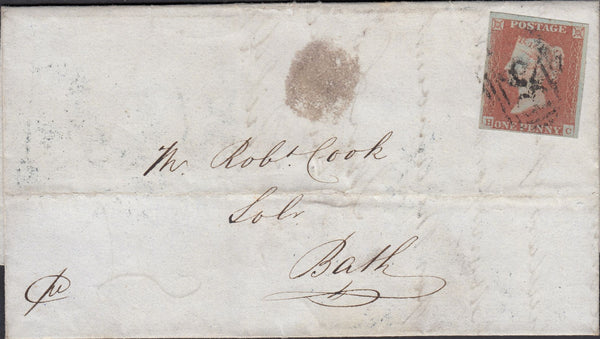 POSTAGE
ONE PENNY
Mr. Robt. Cook
Solr
Bath